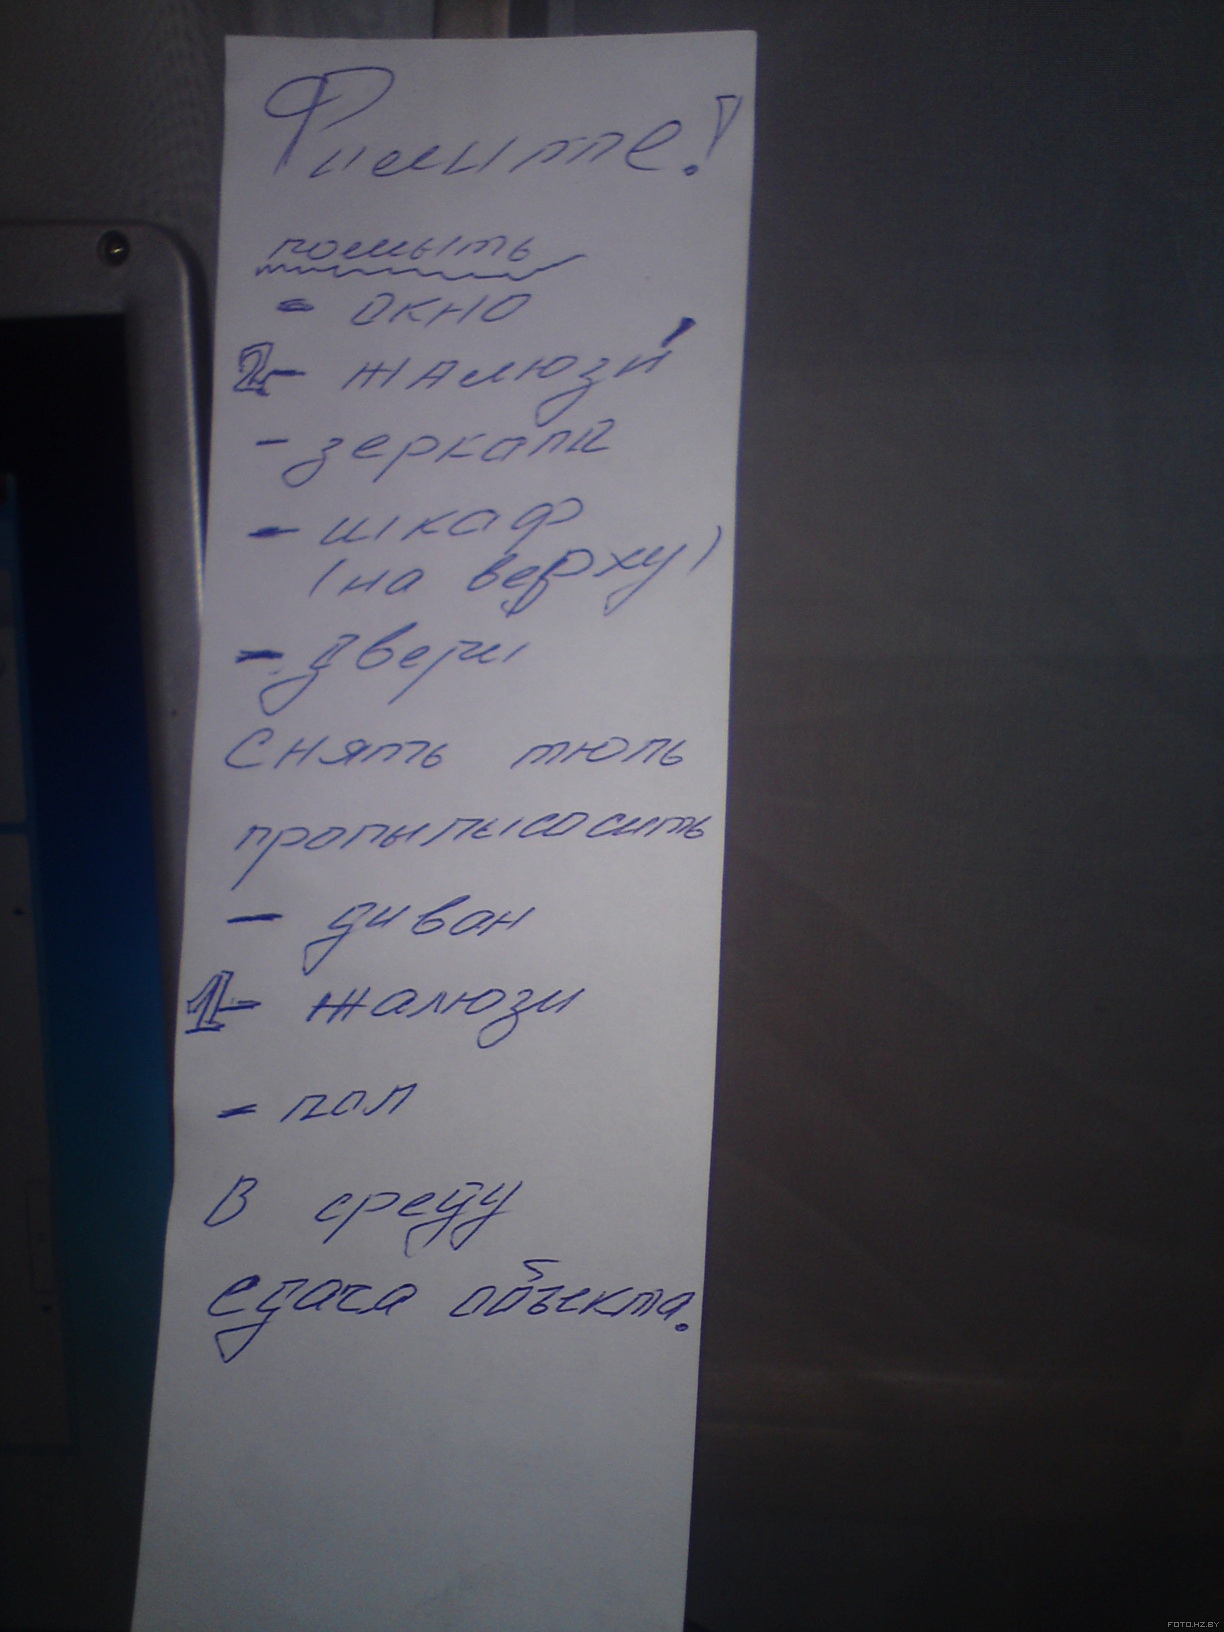 помыть
- окно
2- жалюзи
- зеркала
- шкаф
(на верху)
- двери
Снять тюль
пропылысосить
- диван
1- жалюзи
- пол
В среду
сдача объекта.
FOTO.HZ.BY